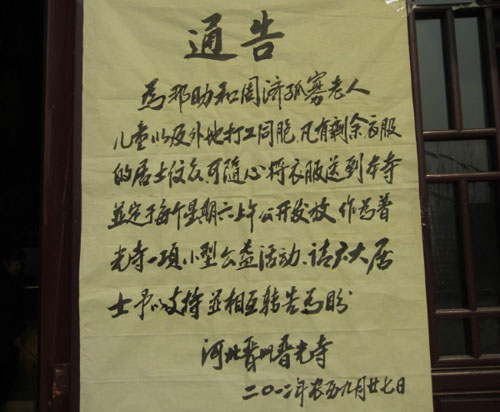 通告
為那助和周济孤寡老人
儿童以及外地打工同胞,凡有剩余衣服
的居士信众可随心将衣服送到本寺
並定于每个星期六上午公开发放,作为普
光寺一项小型公益活动,请广大居
士予以支持並相互转告為盼
河北晋州普光寺
二〇一二年农历九月廿七日